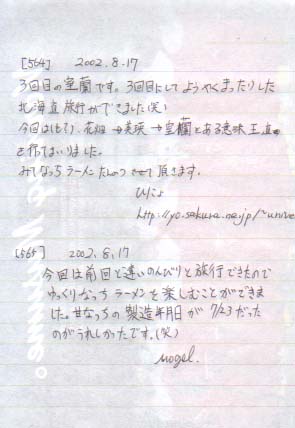 [564] 2002.8.17
3回目の室蘭です。3回目にしてようやくまったりした
北海道旅行ができました(笑)
今回は 花畑→美瑛→室蘭とある意味王道
を行ってまいりました。
みそなっちラーメン たんのう させて頂きます。
ぴによ
[565] 2002.8.17
今回は前回と違いのんびりと旅行できたので
ゆっくりなっちラーメンを楽しむことができま
した。 なっちの製造年月日が 7/23だった
のがうれしかったです。(笑)
mogel.